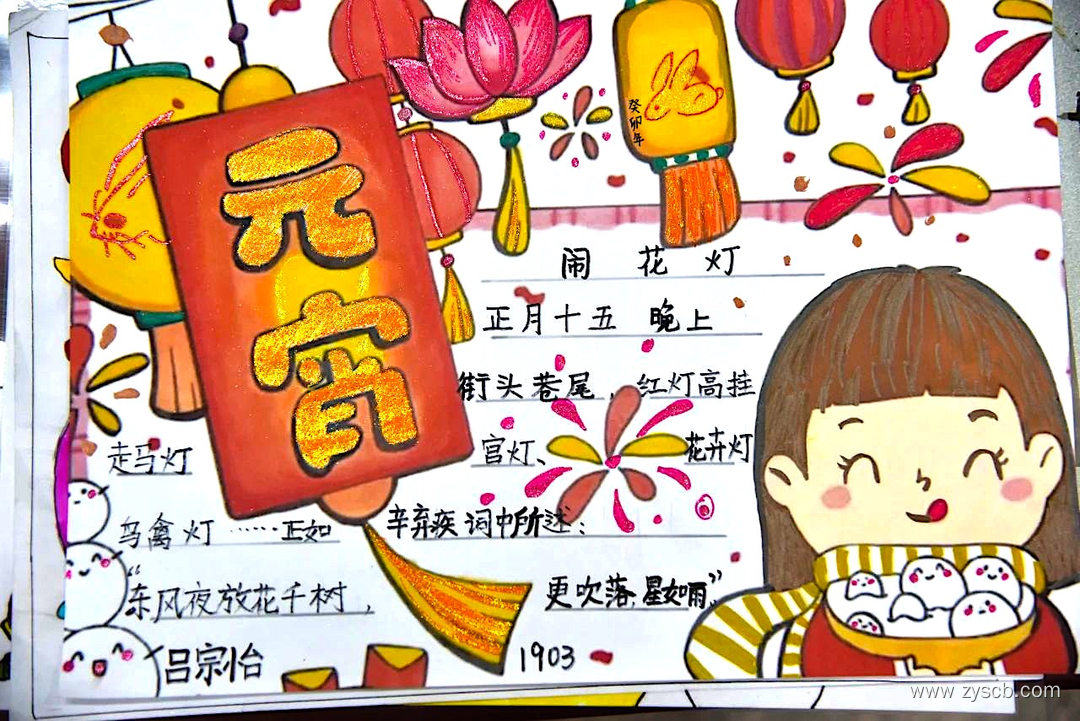 元宵
癸卯年
闹花灯
正月十五 晚上
街头巷尾,红灯高挂
宫灯、花卉灯
走马灯
鸟禽灯……正如辛弃疾词中所述:
“东风夜放花千树,更吹落,星如雨。”
吕宗怡 1903
www.zyscb.com